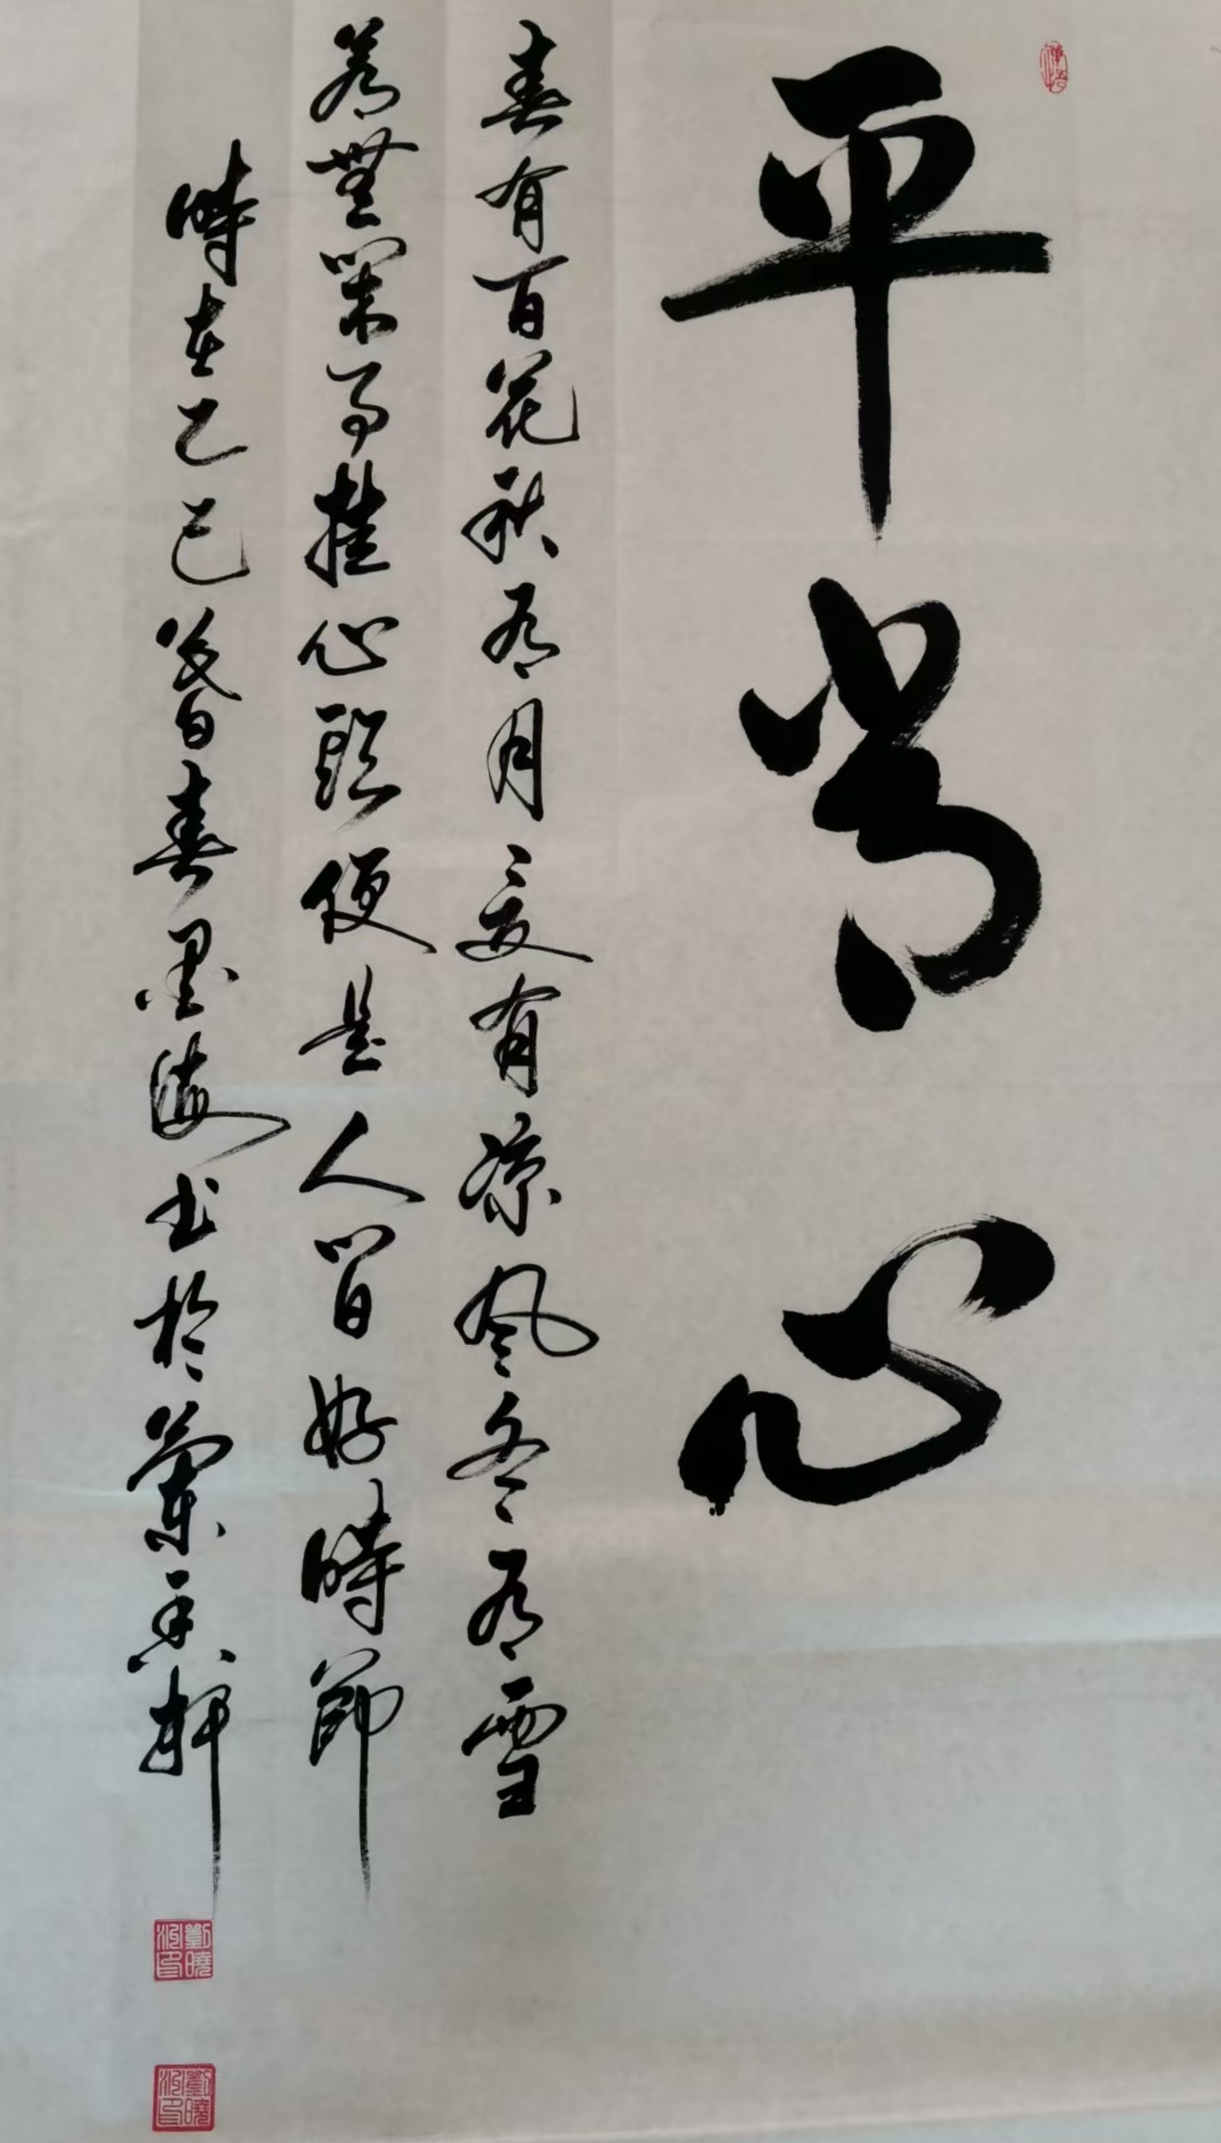 平常心
春有百花秋有月夏有涼風冬有雪
若無閑事挂心頭便是人間好時節
時在乙巳暮春墨海書於蘭香軒